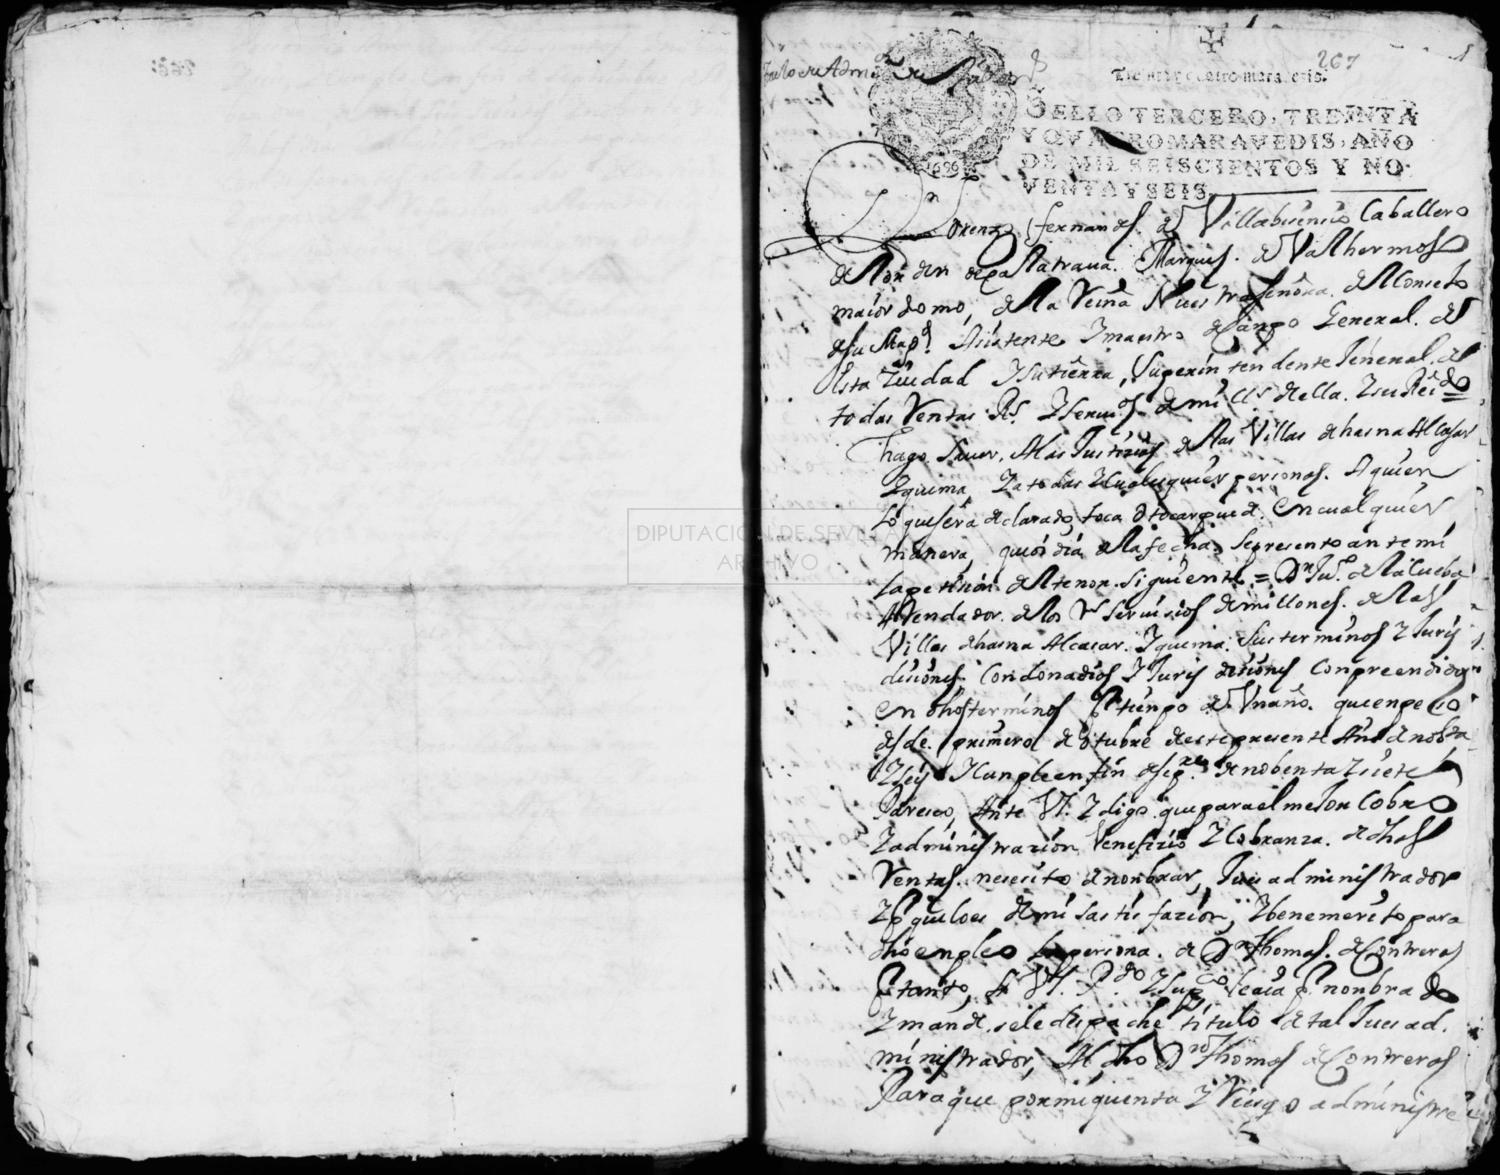 267
Treinta y quatro marauedis.
SELLO TERCERO, TREINTA
Y QVATRO MARAVEDIS, AÑO
DE MIL SEISCIENTOS Y NO-
VENTA Y SEIS.
1696
Dn Lorenzo fernandes de Villabisensio Caballero
del orden de calatraua. Marques. de Valhermoso
maiordomo, de la Reina Nuestra señora. del Conseto
de su Magd. Asistente Imaestro de Canpo General. de
Esta Ziudad Isutierra, Superintendente Jeneral. de
todas Rentas Rs. Iseruios de millones della. Isu Reindo
hago sauer, Alas Justizias de las Villas de hasna Alcasar
Iquema, Iatodas Iqualesquier personas. Aquien
lo que sera declarado, toca Otocar puede. en cualquier
manera, que oi dia de la fecha se presento ante mi
la petision del tenor siguiente = Dn Jue. de la Cueba
ARendador de los Rs seruisios de millones. de las
Villas de hasna Alcasar. Iquema. sus terminos I Juris
disiones. Con donadios I Juris disiones Conpreendidos
en dhos terminos Por tienpo de Vn año. que enpeso
desde. primero de otubre deste presente Año de nobta
Iseis Icunple en fin de sepre. de nobenta I siete
Paresco, Ante VS. I digo que para el melor Cobro
I administrazion Venefizio I Cobranza. de dhas
Rentas. nesesito de nonbrar, Jues administrador
I por que lo es de mi sastisfazion, I benemerito para
dho enpleo la persona. de Dn thomas. de Contreras
Por tanto, A VS. Pdo I Supco. le aia por nonbrado
I mande. se le despache titulo de tal Jues ad.
ministrador, Al dho Dn thomas de Contreras
Para que por mi quenta I Riesgo administre
DIPUTACION DE SEVILLA
ARCHIVO